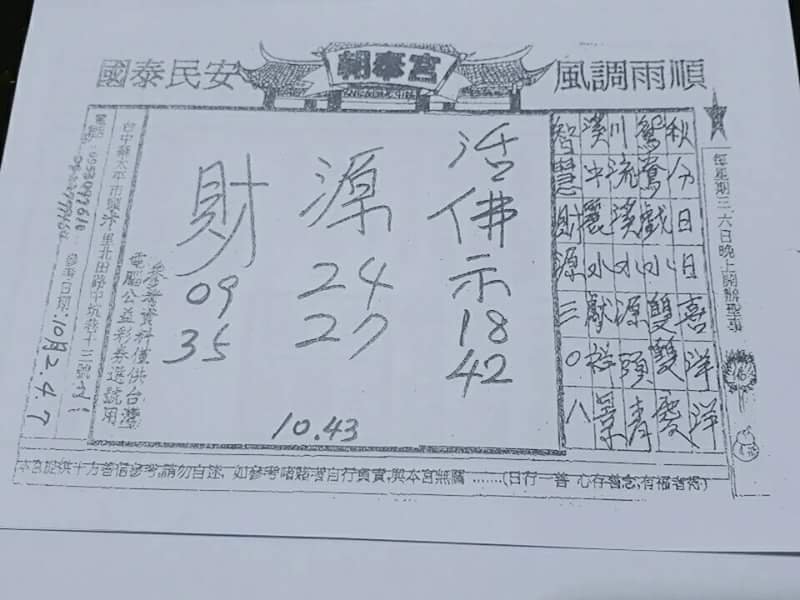 國泰民安
朝奉宮
風調雨順
每星期三.六日晚上開辦聖事
秋分日日喜洋洋
鴛鴦戲水雙雙慶
川流溪水源頭青
溪中麗水獻裕景
智慧財源三○八
活佛示
18
42
源
24
27
財
09
35
10.43
參考資料僅供台灣
電腦公益彩券選號用
台中縣太平市興汴里北田路中坑巷十三號
參考日期:10月2.4.7
本宮提供十方善信參考,請勿自迷,如參考賭賭者自行負責,與本宮無關 ......(日行一善 心存善念,有福者得)